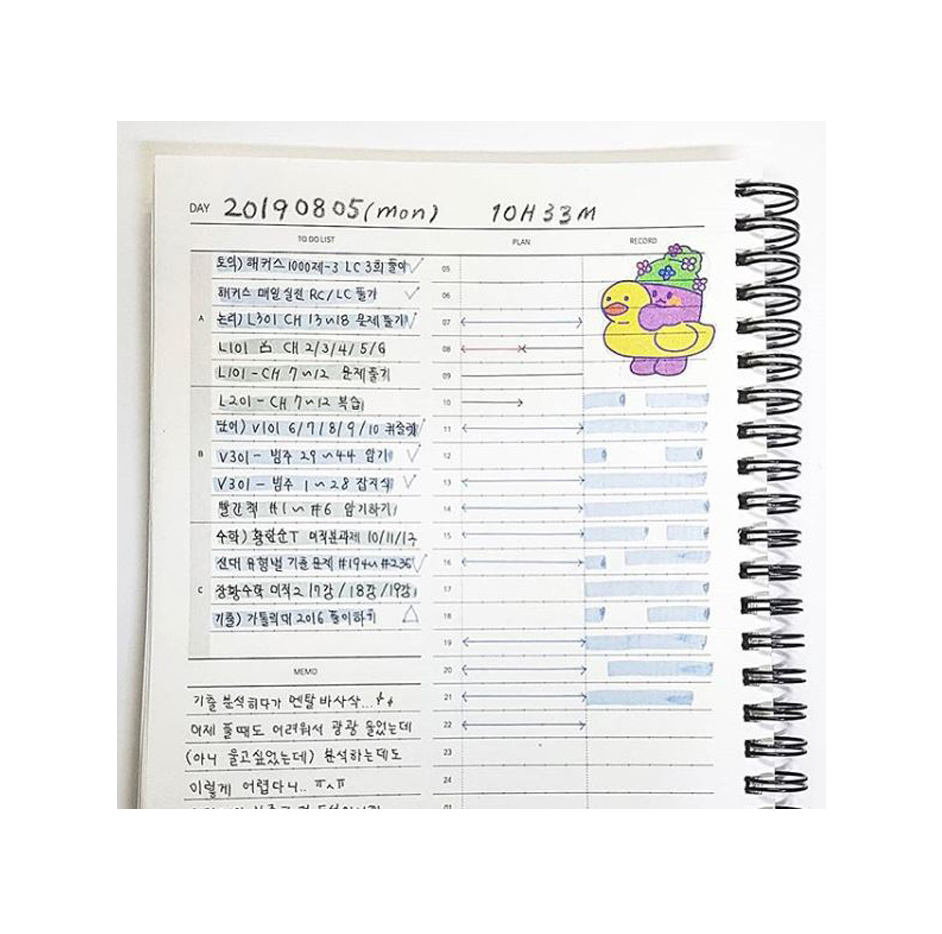 DAY 20190805(mon) 10H 33M
TO DO LIST PLAN RECORD
토익) 해커스 1000제-3 LC 3회 풀이
해커스 매일실전 RC/LC 풀기
A 논리) L301 CH 13~18 문제풀기
L101 CH 2/3/4/5/6
L101-CH 7~12 문제풀기
L201-CH 7~12 복습
단어) V101 6/7/8/9/10 퀴즐렛
B V301- 범주 29~44 암기
V301- 범주 1~28 잡지식
빨간책 #1~#6 암기하기
수학) T 미적분과제 10/11/12
신대 유형별 기출문제 #194~#236
C 장황수학 미적2 17강/18강/19강
기출) 가톨릭대 2016 풀이하기
05
06
07
08
09
10
11
12
13
14
15
16
17
18
19
20
21
22
23
24
01
MEMO
기출 분석하다가 멘탈 바사삭...
어제 풀때도 어려워서 광광 울었는데
(아니 울고싶었는데) 분석하는데도
이렇게 어렵다니.. ㅠㅅㅠ